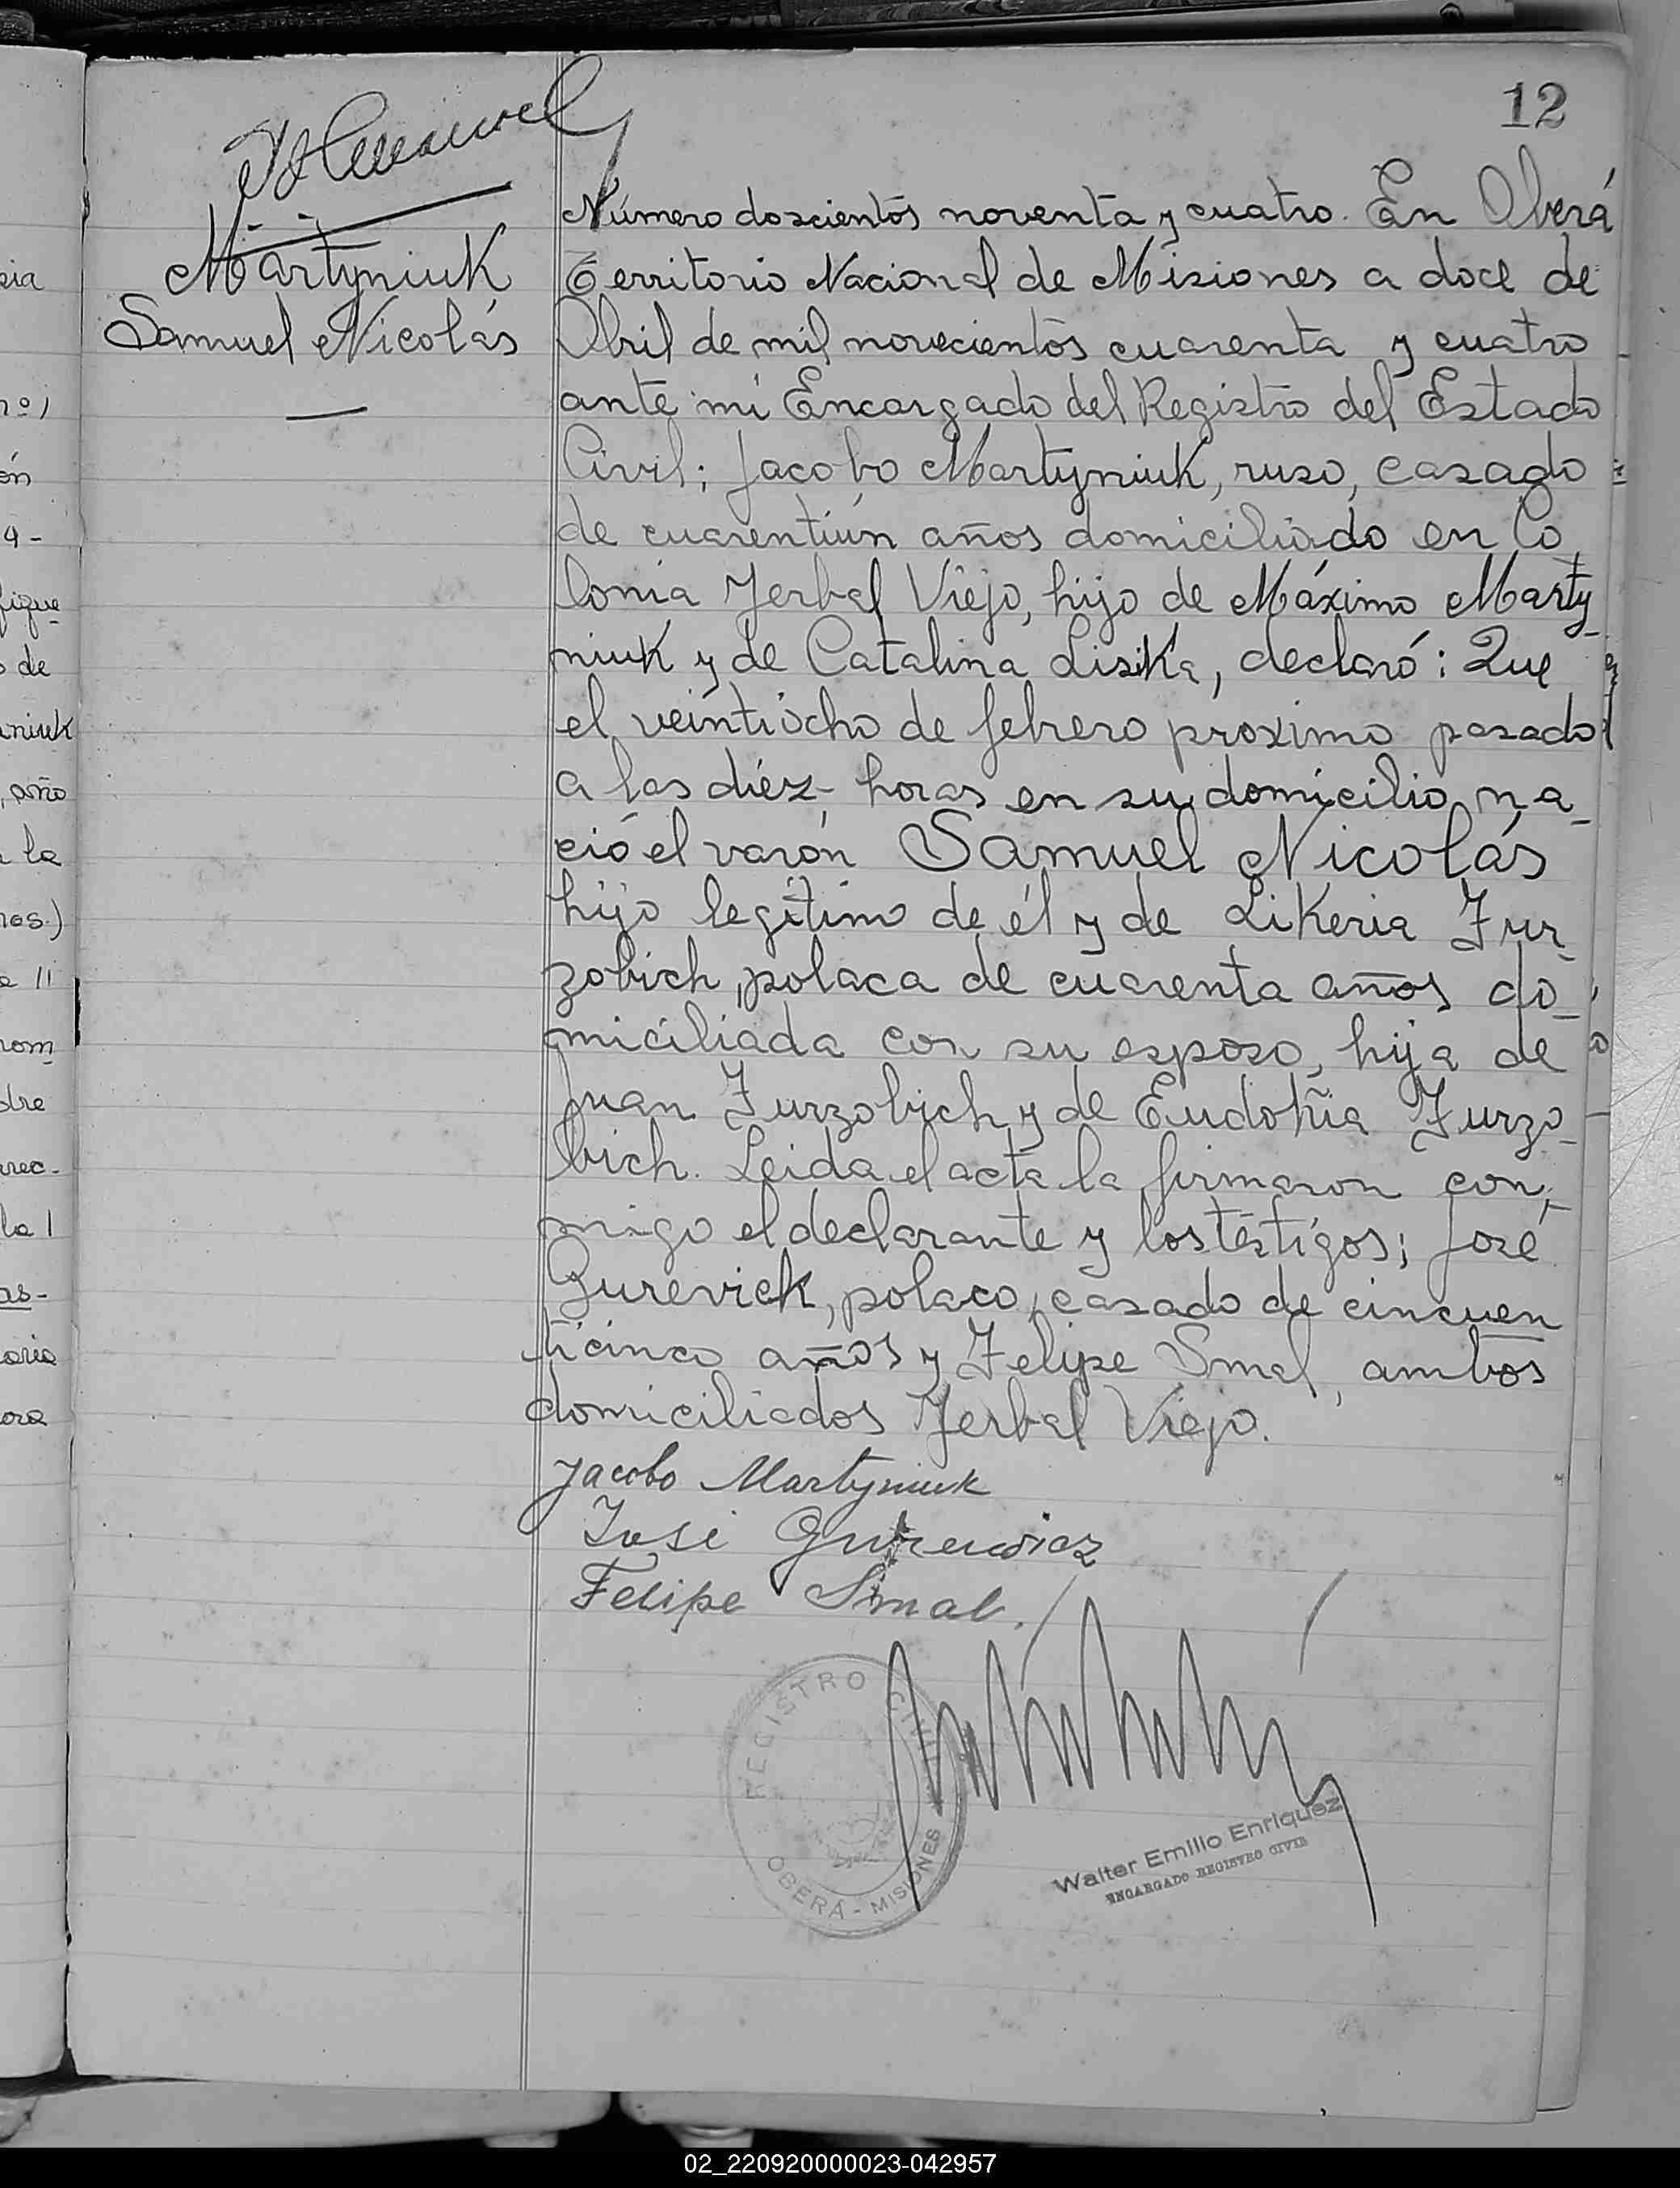 12
Martyniuk
Samuel Nicolás
Número doscientos noventa y cuatro. En Oberá
Territorio Nacional de Misiones a doce de
Abril de mil novecientos cuarenta y cuatro
ante mí Encargado del Registro del Estado
Civil; Jacobo Martyniuk, ruso, casado
de cuarentiún años domiciliado en Co
lonia Yerbal Viejo, hijo de Máximo Marty_
niuk y de Catalina Liska, declaró: Que
el veintiocho de febrero próximo pasado
a las diéz horas en su domicilio na_
ció el varón Samuel Nicolás
hijo legítimo de él y de Likeria Fur_
zobich, polaca de cuarenta años do_
miciliada con su esposo, hija de
Juan Furzobich y de Eudokia Furzo_
bich. Leida el acta la firmaron con_
migo el declarante y los testigos; José
Gurevick, polaco, casado de cincuen
ticinco años y Felipe Smal, ambos
domiciliados Yerbal Viejo.
Jacobo Martyniuk
José Gurewicz
Felipe Smal.
REGISTRO CIVIL
OBERÁ - MISIONES
Walter Emilio Enriquez
ENCARGADO REGISTRO CIVIL
sia
nº)
ón
4-
figue
de
niuk
, año
la
nos.)
a 11
nom
dre
rrec-
la 1
as-
oria
ora
02_220920000023-042957